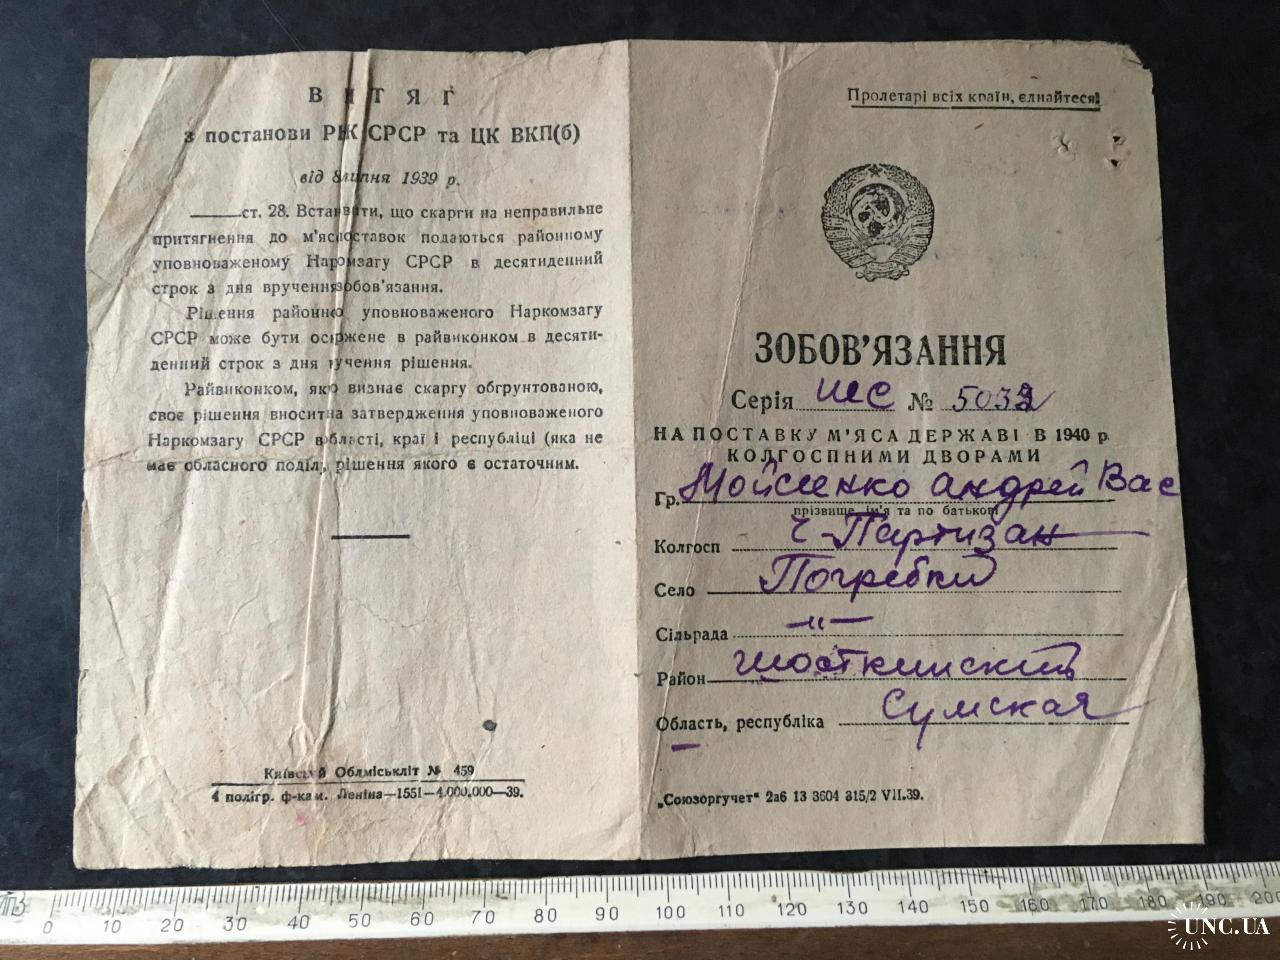 ВИТЯГ
з постанови РНК СРСР та ЦК ВКП(б)
від 8 липня 1939 р.
ст. 28. Встановити, що скарги на неправильне
притягнення до м'ясопоставок подаються районному
уповноваженому Наркомзагу СРСР в десятиденний
строк з дня вручення зобов'язання.
Рішення районного уповноваженого Наркомзагу
СРСР може бути оскаржене в райвиконком в десяти-
денний строк з дня вручення рішення.
Райвиконком, якщо визнає скаргу обгрунтованою,
своє рішення вносить на затвердження уповноваженого
Наркомзагу СРСР в області, краї і республіці (яка не
має обласного поділу), рішення якого є остаточним.
Київський Облміськліт № 459
4 полігр. ф-ка ім. Леніна—1551—4.000.000—39.
Пролетарі всіх країн, єднайтеся!
ЗОБОВ'ЯЗАННЯ
Серія ШС № 5032
НА ПОСТАВКУ М'ЯСА ДЕРЖАВІ В 1940 р.
КОЛГОСПНИМИ ДВОРАМИ
Гр. Мойсиенко Андрей Вас
прізвище, ім'я та по батькові
Колгосп Ч-Партизан
Село Погребки
Сільрада —"—
Район Шосткинский
Область, республіка Сумская
„Союзоргучет" 2аб 13 3604 315/2 VII.39.
0 10 20 30 40 50 60 70 80 90 100 110 120 130 140 150 160 170 180 190 200
UNC.UA